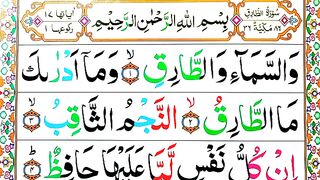 سُوْرَةُ الطَّارِقِ
بِسْمِ اللّٰهِ الرَّحْمٰنِ الرَّحِيْمِ
اٰيَاتُهَا ١٧
رُكُوْعُهَا ١
وَالسَّمَآءِ وَالطَّارِقِ ۙ﴿۱﴾ وَمَاۤ اَدْرٰىكَ
مَا الطَّارِقُ ۙ﴿۲﴾ النَّجْمُ الثَّاقِبُ ۙ﴿۳﴾
اِنْ كُلُّ نَفْسٍ لَّمَّا عَلَيْهَا حَافِظٌ ؕ﴿۴﴾